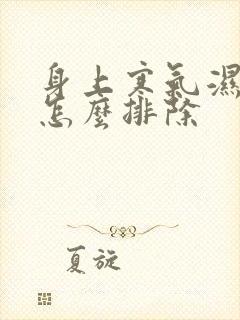 身上寒氣濕
怎麼排除
夏旋